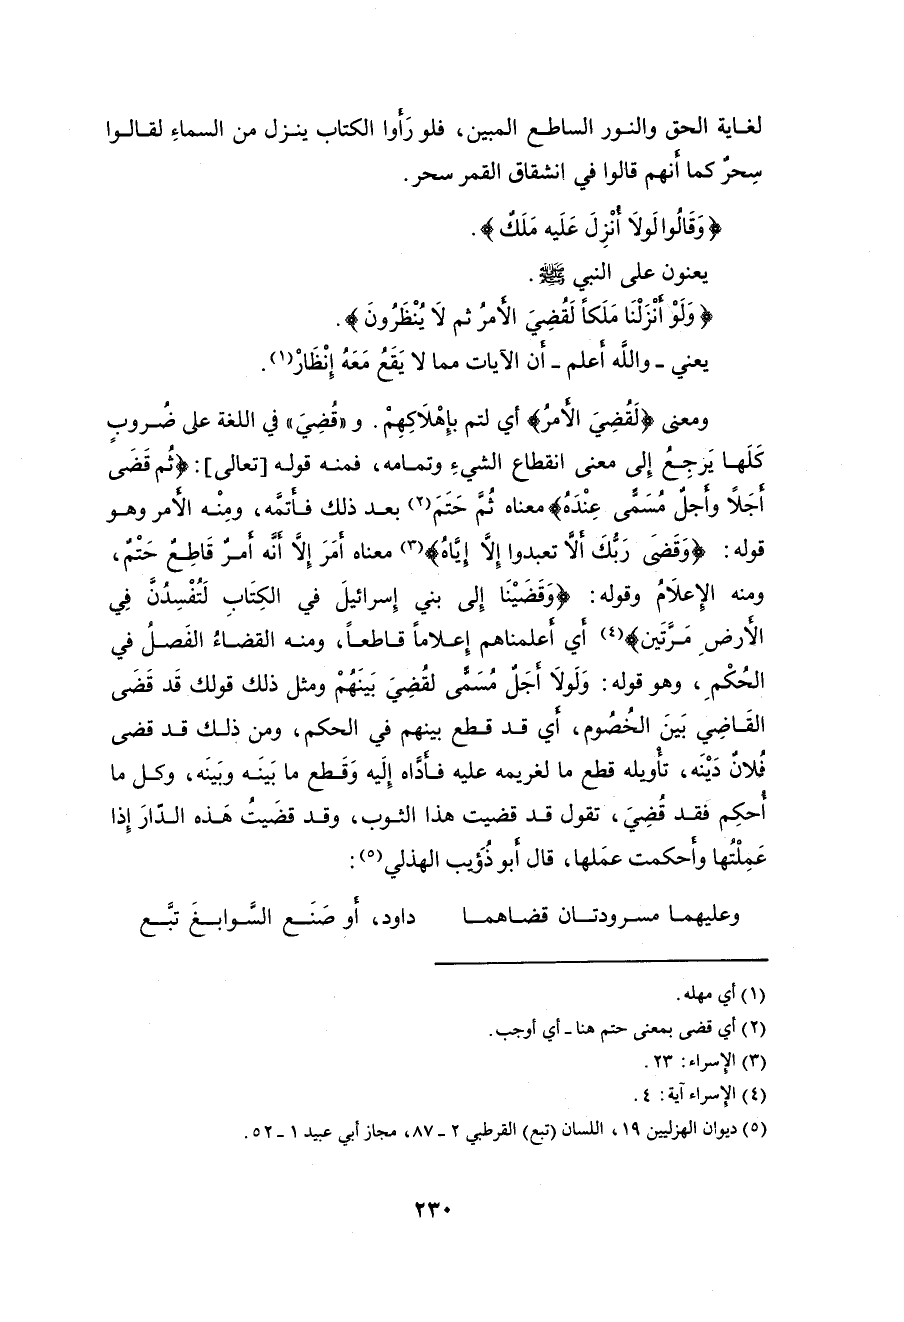 لغاية الحق والنور الساطع المبين، فلو رَأَوا الكتاب ينزل من السماءِ لقالوا
سِحرٌ كما أَنهم قالوا في انشقاق القمر سحر.
﴿وَقَالُوا لَولاَ أُنْزِلَ عَلَيه مَلَكٌ﴾.
يعنون على النبي ﷺ.
﴿وَلَوْ أَنْزَلْنَا مَلَكاً لَقُضِيَ الأَمرُ ثم لاَ يُنْظَرُونَ﴾.
يعني ـ واللَّه أَعلم ـ أَن الآيات مما لا يَقَعُ مَعَهُ إِنْظَارٌ(١).
ومعنى ﴿لَقُضِيَ الأَمرُ﴾ أي لتم بإِهْلَاكِهِمْ. و «قُضِيَ» في اللغة على ضُروبٍ
كَلَها يَرجِعُ إلى معنى انقطاع الشيءِ وتمامه، فمنه قوله [تعالى]: ﴿ثُم قَضَى
أَجَلاً وأَجلٌ مُسَمًّى عِنْدَهُ﴾ معناه ثُمَّ حَتَمَ(٢) بعد ذلك فأَتمَّه، ومِنْه الأَمر وهو
قوله: ﴿وَقَضَى رَبُّكَ أَلاَّ تعبدوا إِلاَّ إِيَّاهُ﴾(٣) معناه أَمَرَ إِلاَّ أَنَّه أَمرٌ قَاطِعٌ حَتْمٌ،
ومنه الإِعلَامُ وقوله: ﴿وَقَضَيْنَا إلى بني إسرائيلَ في الكِتَابِ لَتُفْسِدُنَّ فِي
الأَرضِ مَرَّتَين﴾(٤) أَي أَعلمناهم إِعلاماً قاطعاً، ومنه القضاءُ الفَصلُ في
الحُكْمِ، وهو قوله: وَلَولَا أَجَلٌ مُسَمًّى لقُضِيَ بَينَهُمْ ومثل ذلك قولك قَد قَضَى
القَاضِي بَينَ الخُصُوم، أَي قد قطع بينهم في الحكم، ومن ذلك قد قضى
فُلانٌ دَيْنَه، تأْويله قطع ما لغريمه عليه فأَدَّاه إِلَيه وَقَطع ما بَينَه وبَينَه، وكل ما
أُحكِم فقد قُضِيَ، تقول قد قضيت هذا الثوب، وقد قضَيتُ هَذه الدّارَ إذا
عَمِلْتُها وأَحكمت عمَلها، قال أَبو ذُؤَيب الهذلي(٥):
وعليهما مسرودتان قضاهما    داود، أَو صَنَع السَّوابغَ تبَّع
(١) أي مهله.
(٢) أي قضى بمعنى حتم هنا ـ أي أوجب.
(٣) الإسراء: ٢٣.
(٤) الإسراء آية: ٤.
(٥) ديوان الهزليين ١٩، اللسان (تبع) القرطبي ٢ ـ ٨٧، مجاز أبي عبيد ١ ـ ٥٢.
٢٣٠